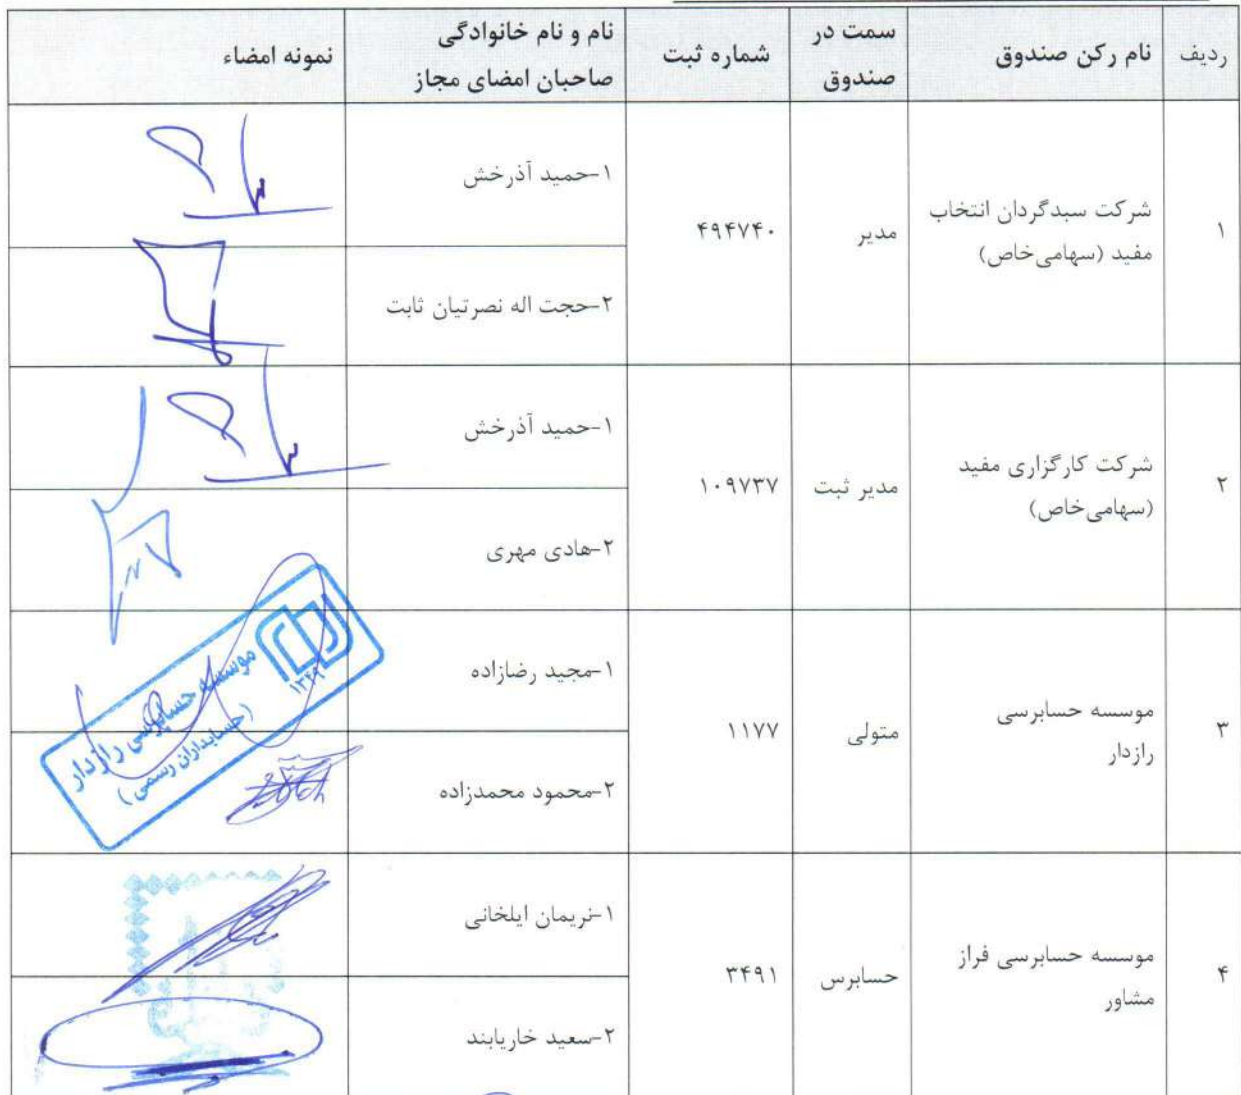 ردیف
نام رکن صندوق
سمت در
صندوق
شماره ثبت
نام و نام خانوادگی
صاحبان امضای مجاز
نمونه امضاء
۱
شرکت سبدگردان انتخاب
مفید (سهامی‌خاص)
مدیر
۴۹۴۷۴۰
۱-حمید آذرخش
۲-حجت اله نصرتیان ثابت
۲
شرکت کارگزاری مفید
(سهامی‌خاص)
مدیر ثبت
۱۰۹۷۳۷
۱-حمید آذرخش
۲-هادی مهری
۳
موسسه حسابرسی
رازدار
متولی
۱۱۷۷
۱-مجید رضازاده
۲-محمود محمدزاده
موسسه حسابرسی رازدار
(حسابداران رسمی)
۱۳۴۹
۴
موسسه حسابرسی فراز
مشاور
حسابرس
۳۴۹۱
۱-نریمان ایلخانی
۲-سعید خاریابند